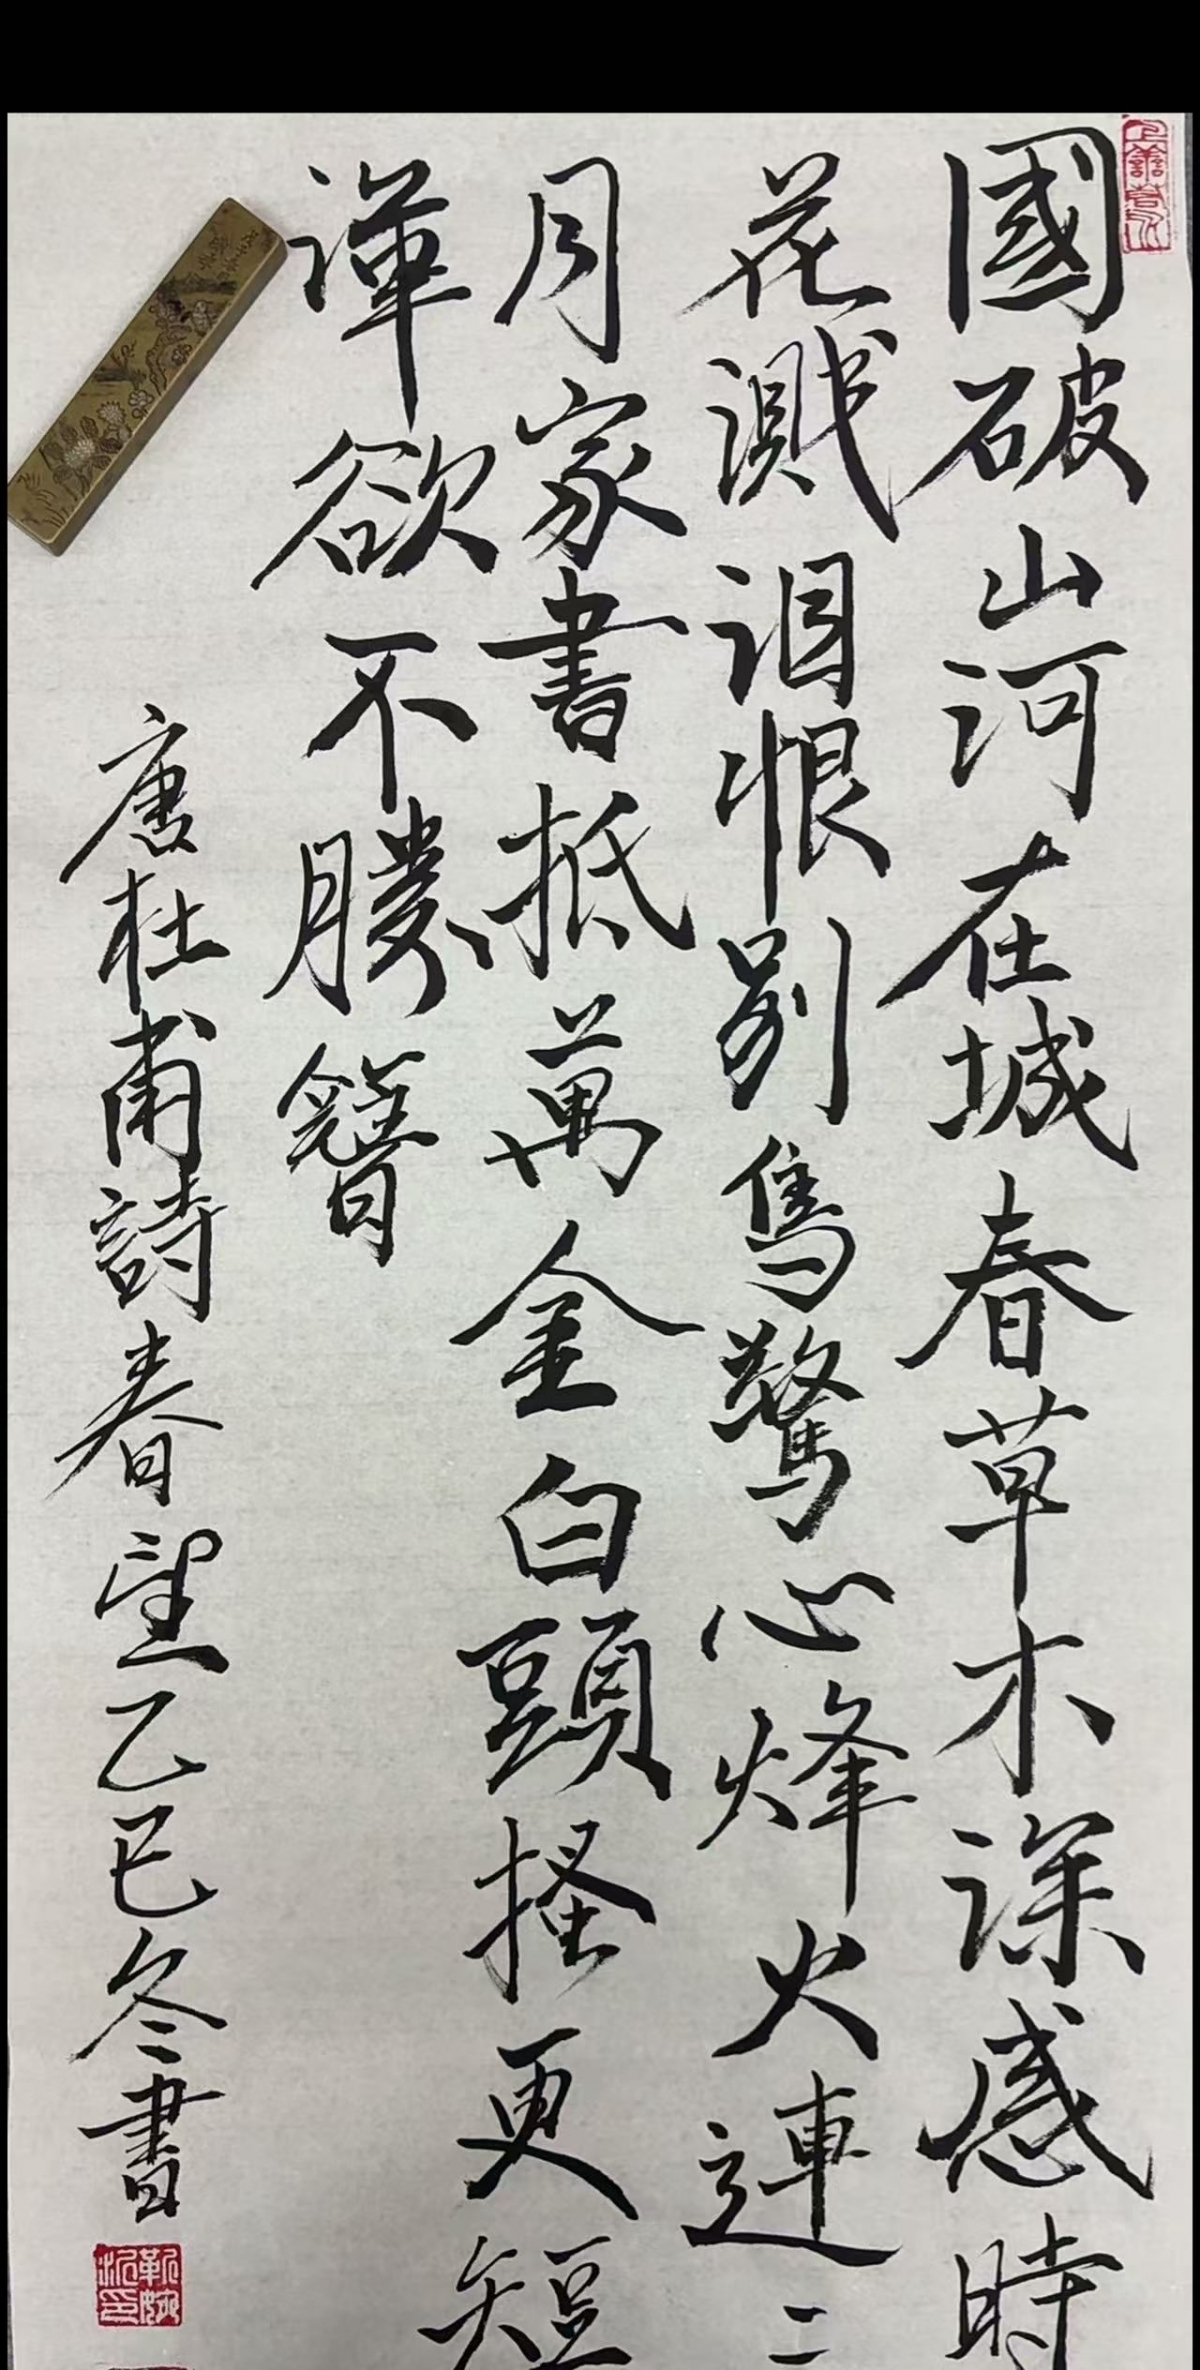 上善若水
國破山河在城春草木深感時
花濺泪恨别鳥驚心烽火連三
月家書抵萬金白頭搔更短
渾欲不勝簪
唐杜甫詩春望乙巳冬書